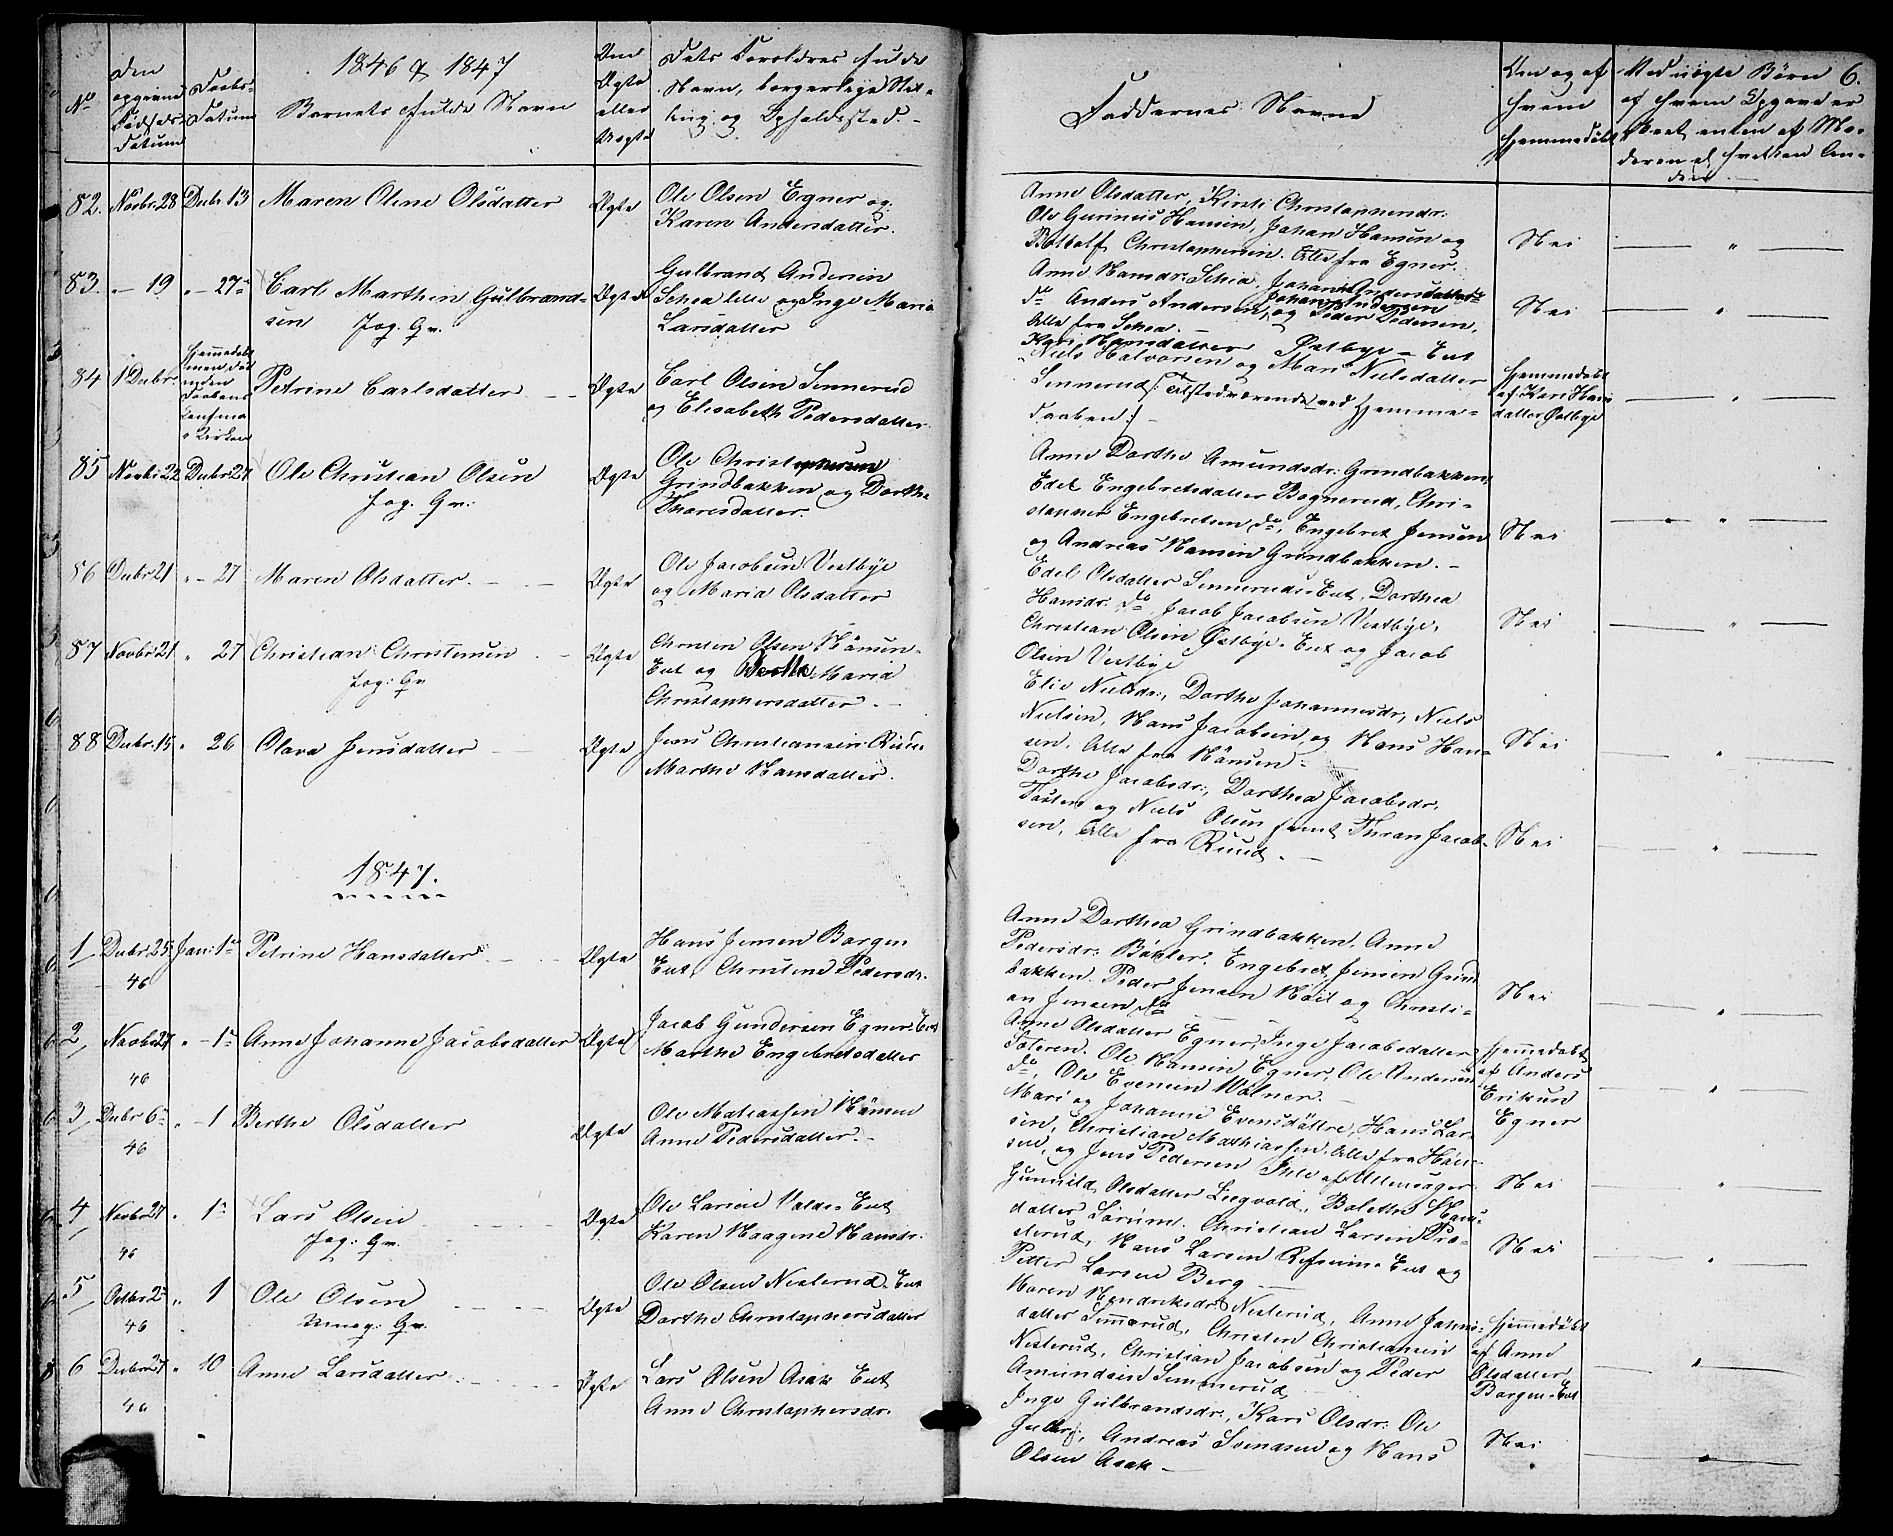 1846 & 1847
No
Den opgivne Fødsels Datum
Daabs-Datum
Barnets fulde Navn
Om Ægte eller Uægte
Dets Forældres fulde
Navn, borgerlige Stil-
ling og Opholdssted.
Faddernes Navne
Om og af hvem hjemmedøbt
Ved uægte Børn 6.
af hvem Opgave er
skeet enten af Mo-
deren el. hvilken An-
den
82. Novbr 28 Decbr 13 Maren Oline Olsdatter Ægte
Ole Olsen Egner og
Karen Andersdatter.
Anne Olsdatter, Kirsti Christophersdr:
Ole Gurinius Hansen, Johan Hansen og
Bottolf Christophersen. Alle fra Egner.
Nei
83. " - 19 " - 27 Carl Marthin Gulbrand-
sen Jog. Gv.
Ægte
Gulbrand Andersen
Schea lille og Inge Maria
Larsdatter
Anne Hansdr: Schea, Johanne Andersdatter
do Anders Andersen, Johannes Andersen og Peder Pedersen,
Alle fra Schea.
Nei
84 1 Decbr.
Petrine Carlsdatter Ægte
Carl Olsen Simmerud
og Elisabeth Pedersdatter.
Kari Hansdatter Østbye - Eiet
Niels Halvorsen og Mari Nielsdatter
Simmerud /: Tilstedværende ved Hjemme-
daaben :/
hjemmedøbt
af Kari Hans
datter Østbye
85 Novbr 22 Decbr 27 Ole Christian Olsen
Jog. Gv:
Ægte
Ole Christophersen
Grindbakken og Dorthe
Thoresdatter.
Anne Dorthe Amundsdr: Grindbakken,
Edel Engebretsdatter Bognerud, Chri-
stopher Engebretsen do, Engebret Jensen
og Andreas Hansen Grindbakken.
Nei
86 Decbr 21 " - 27 Maren Olsdatter Ægte
Ole Jacobsen Vestbye
og Maria Olsdatter
Edel Olsdatter Simmeruds-Eiet, Dorthea
Hansdr: do, Jacob Jacobsen Vestbye,
Christian Olsen Østbye-Eiet og Jacob
Olsen Vestbye
Nei
87 Novbr 21 " 27 Christian Christensen
Jog: Gv
Ægte
Christen Olsen Hånsen-
Eiet og Dorthe Maria
Christophersdatter.
Elie Nielsdr:, Dorthe Johannesdr, Niels
Nielsen, Hans Jacobsen og Hans Han-
sen, Alle fra Hånsen.
Nei
88 Decbr 15 " 26 Olava Jensdatter Ægte
Jens Christiansen Ruud
Marthe Hansdatter.
Dorthe Jacobsdr:, Dorthea Jacobsdr,
Torsten og Niels Olsen samt Thoran Jacob-
sen, Alle fra Ruud.
Nei
1847.
1 Decbr 25 46 Jan: 1 Petrine Hansdatter Ægte
Hans Jensen Borgen
Eiet, Christine Pedersdr.
Anne Dorthea Grindbakken, Anne
Pedersdr: Bøhler, Engebret Jensen Grind
bakken, Peder Jensen og Christi-
an Jensen do
Nei
2 Novbr 27 46 " - 1 Anne Johanne Jacobsdatter Ægte
Jacob Gundersen Egner-Eiet
Marthe Engebretsdatter
Anne Olsdatter Egner, Inge Jacobsdatter
Ole Hansen Egner, Ole Andersen
do, Ole Evensen
hjemmedøbt
af Anders
Eriksen
Egner
3 Decbr 6 46 " - 1 Berthe Olsdatter Ægte
Ole Matiassen Hånsen
Anne Pedersdatter.
Mari og Johanne Evensdøttre, Hans Lar-
sen, Christian Mathiassen, Alle fra Hån-
sen, og Jens Pedersen Ihle af Ullensager
Nei
4 Novbr 27 46 " 1 Lars Olsen
Jog: Gv.
Ægte
Ole Larsen Valds-Eiet
Karen Haagine Hansdr:
Gunnild Olsdatter Liegvold, Bolette Hans-
datter Sørum, Christian Larsen
Hans Larsen Eiet og
Petter Larsen Berg
Nei
5 Octbr 2 46 " 1 Ole Olsen
Unog: Gv.
Ægte
Ole Olsen Nesterud-Eiet
Dorthe Christophersdatter
Maren Hendriksdr: Nesterud, Anne Johns-
datter Simmerud, Christen Christiansen
Nesterud, Christian Jacobsen og Peder
Amundsen Simmerud
hjemmedøbt
af Anne
Olsdatter
Borgen-Eiet
6 Decbr 27 46 " 10 Anne Larsdatter Ægte
Lars Olsen Asak Eiet
Anne Christophersdr.
Inge Gulbrandsdr:, Kari Olsdr: Ole
Andreas Svendsen og Hans
Olsen Asak
Nei